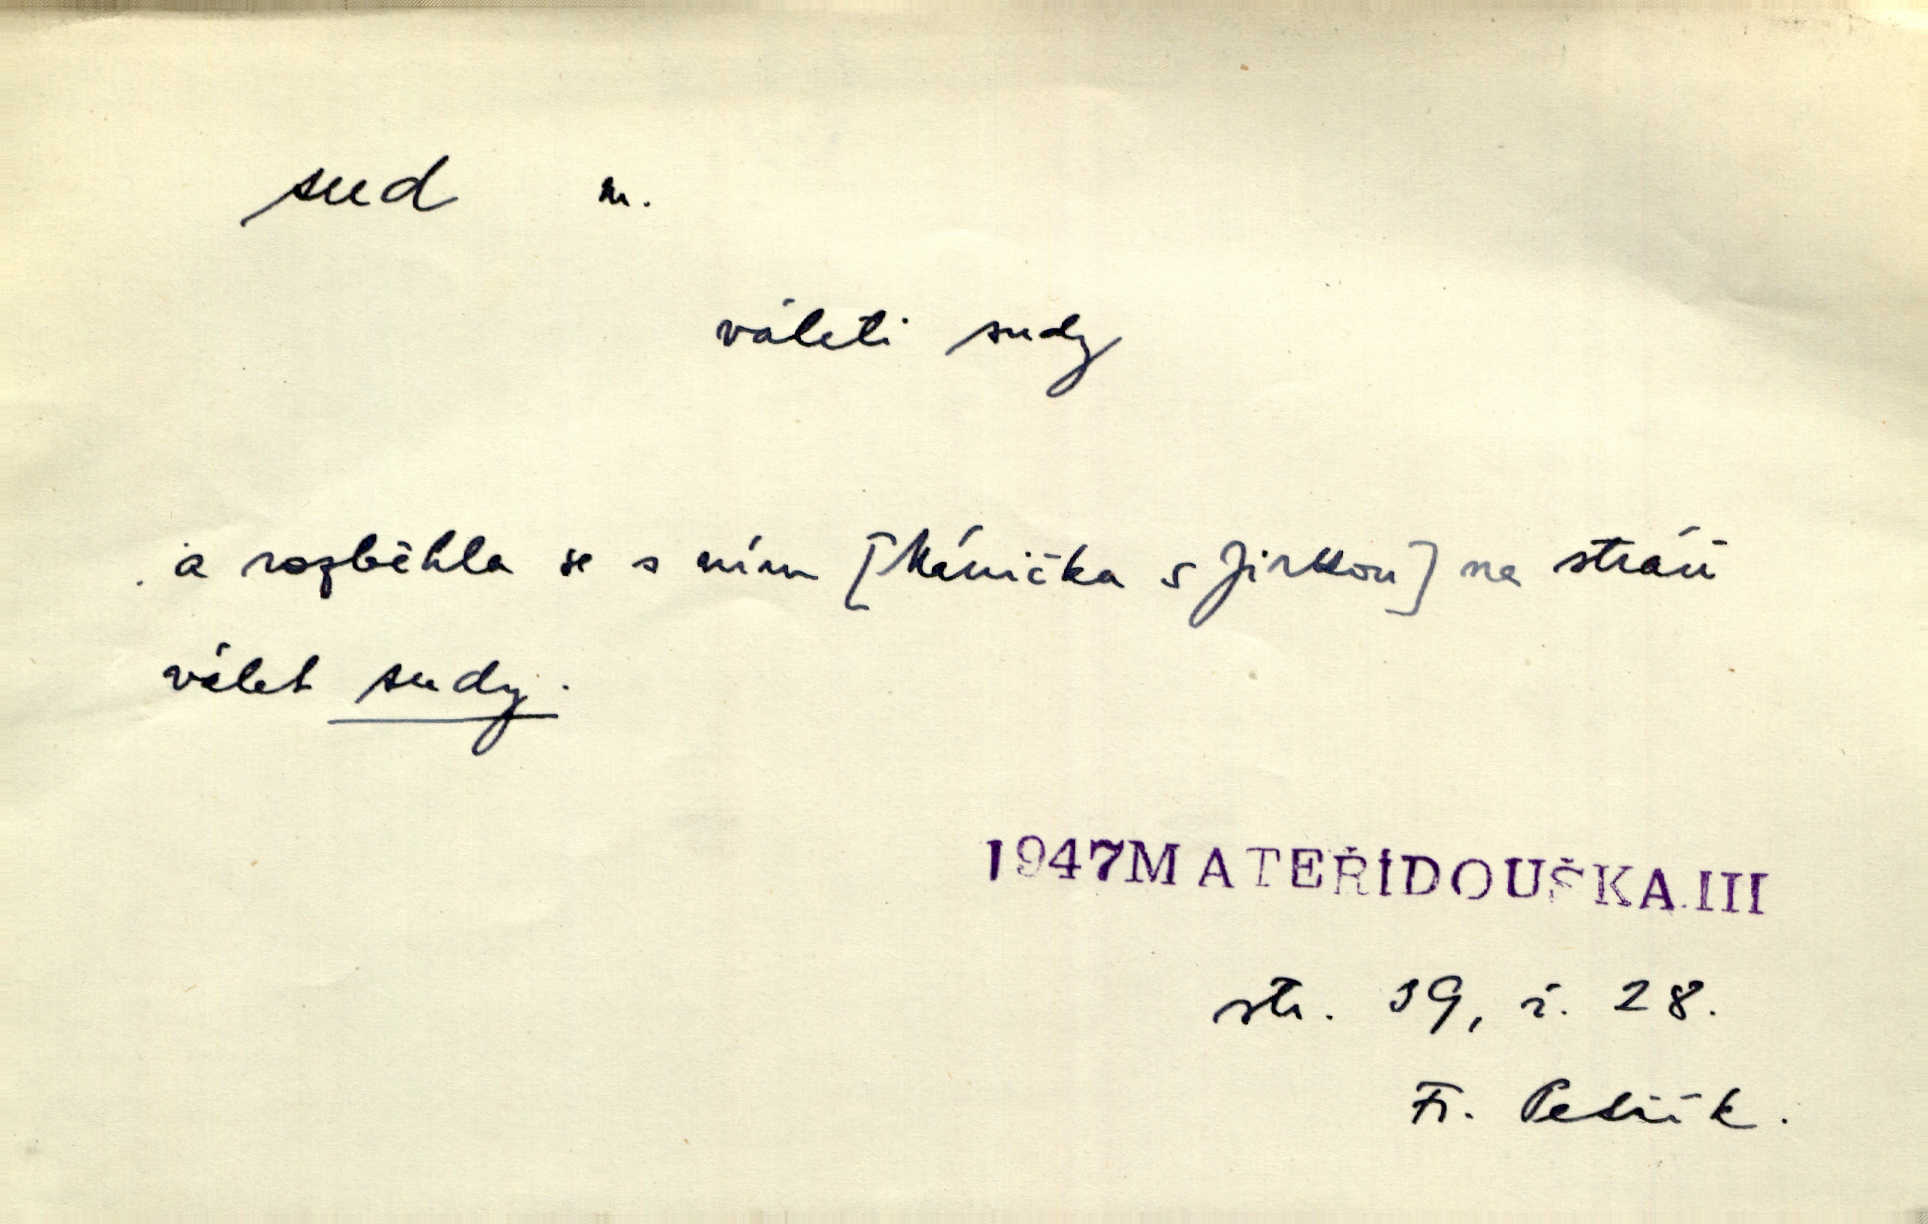 sud m.
váleti sudy
a rozběhla se s ním [Mánička s Jirkou] na stráň
válet sudy.
1947 MATEŘÍDOUŠKA III
str. 39, ř. 28.
Fr. Petřík.